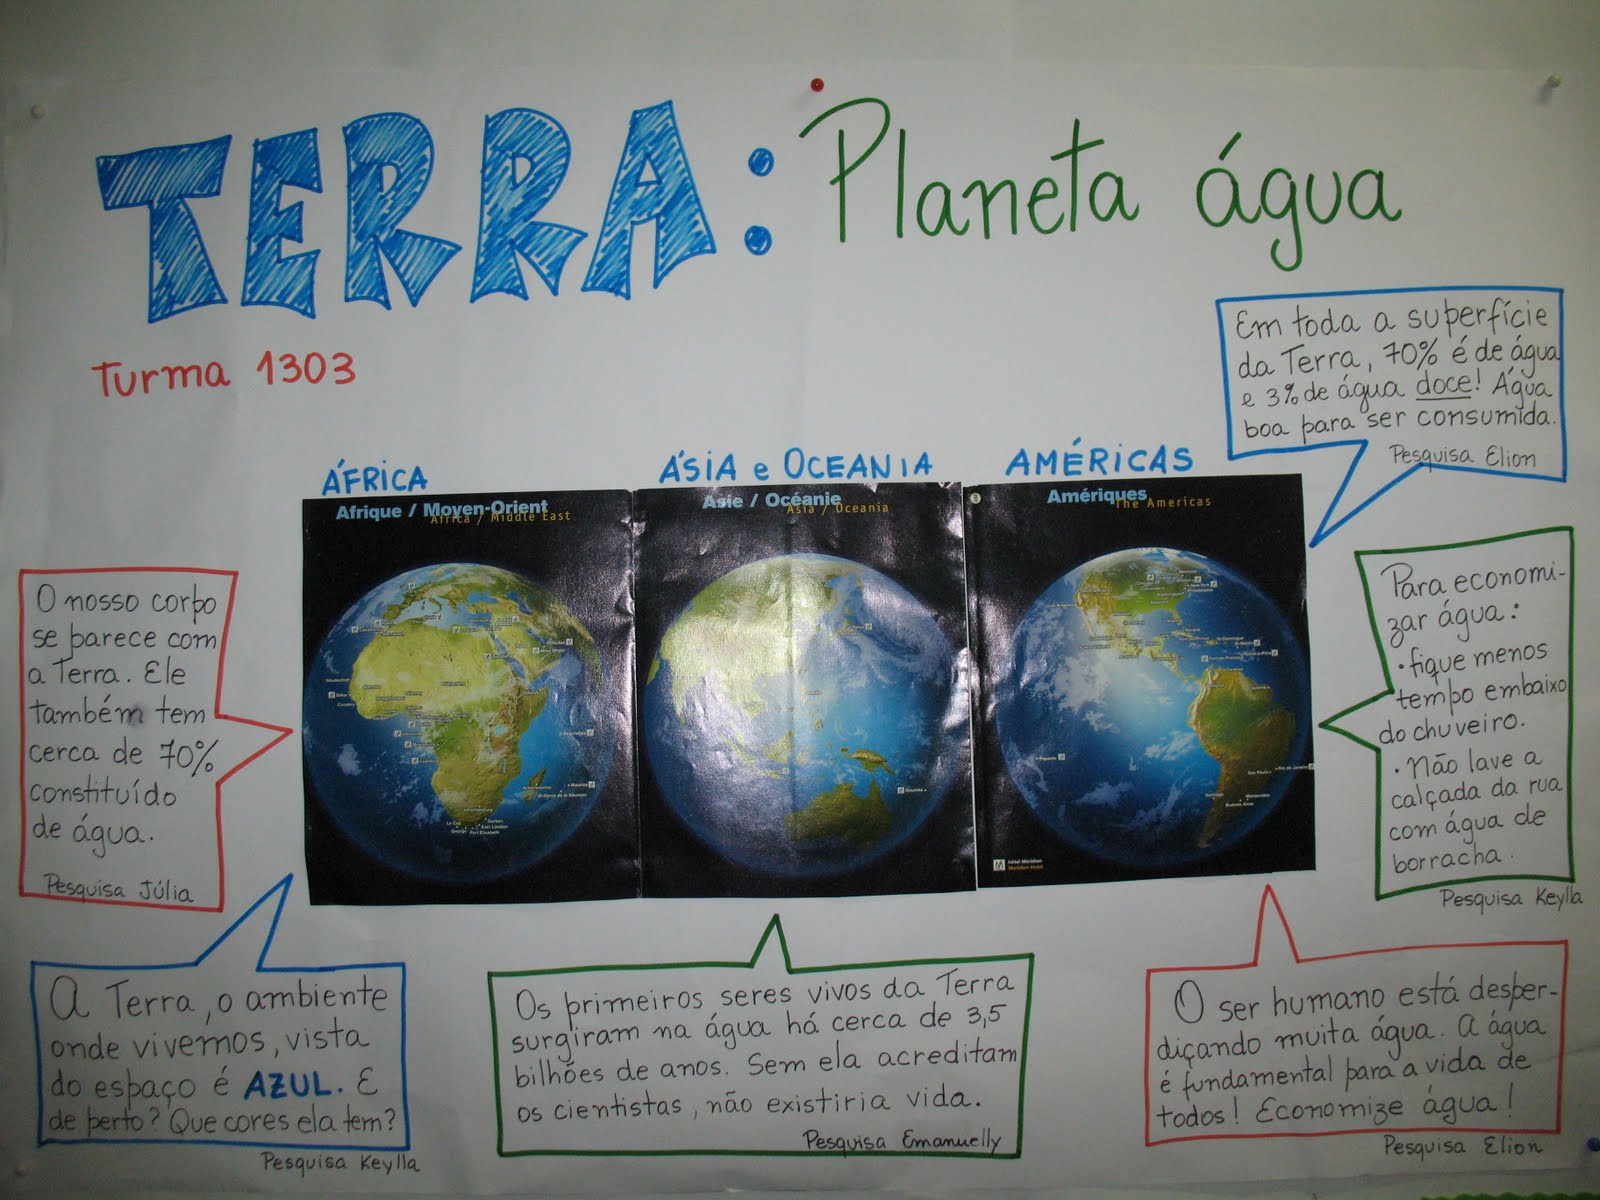 TERRA: Planeta água
Turma 1303
Em toda a superfície
da Terra, 70% é de água
e 3% de água doce! Água
boa para ser consumida.
Pesquisa Elion
ÁFRICA
ÁSIA e OCEANIA
AMÉRICAS
Afrique / Moyen-Orient
Africa / Middle East
Asie / Océanie
Asia / Oceania
Amériques
The Americas
O nosso corpo
se parece com
a Terra. Ele
também tem
cerca de 70%
constituído
de água.
Pesquisa Júlia
Para economi-
zar água:
· fique menos
tempo embaixo
do chuveiro.
· Não lave a
calçada da rua
com água de
borracha.
Pesquisa Keylla
Hôtel Méridien
Meridien Hotel
A Terra, o ambiente
onde vivemos, vista
do espaço é AZUL. E
de perto? Que cores ela tem?
Pesquisa Keylla
Os primeiros seres vivos da Terra
surgiram na água há cerca de 3,5
bilhões de anos. Sem ela acreditam
os cientistas, não existiria vida.
Pesquisa Emanuelly
O ser humano está desper-
diçando muita água. A água
é fundamental para a vida de
todos! Economize água!
Pesquisa Elion